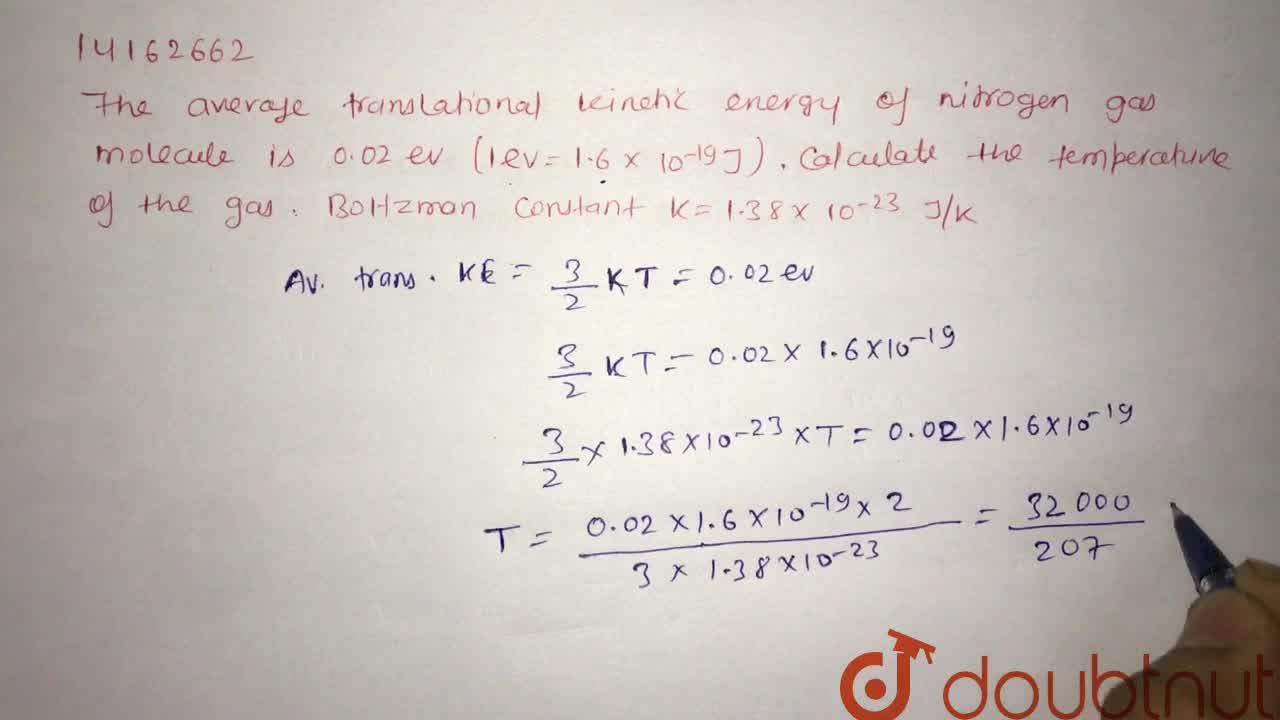 14162662
The average translational kinetic energy of nitrogen gas
molecule is 0.02 ev (1ev = 1.6 × 10⁻¹⁹J). Calculate the temperature
of the gas. Boltzman constant K = 1.38 × 10⁻²³ J/K
Av. trans. KE = 3/2 KT = 0.02 ev
3/2 KT = 0.02 × 1.6×10⁻¹⁹
3/2 × 1.38×10⁻²³ × T = 0.02 × 1.6×10⁻¹⁹
T = 0.02 × 1.6 × 10⁻¹⁹ × 2 / 3 × 1.38×10⁻²³ = 32000 / 207
doubtnut